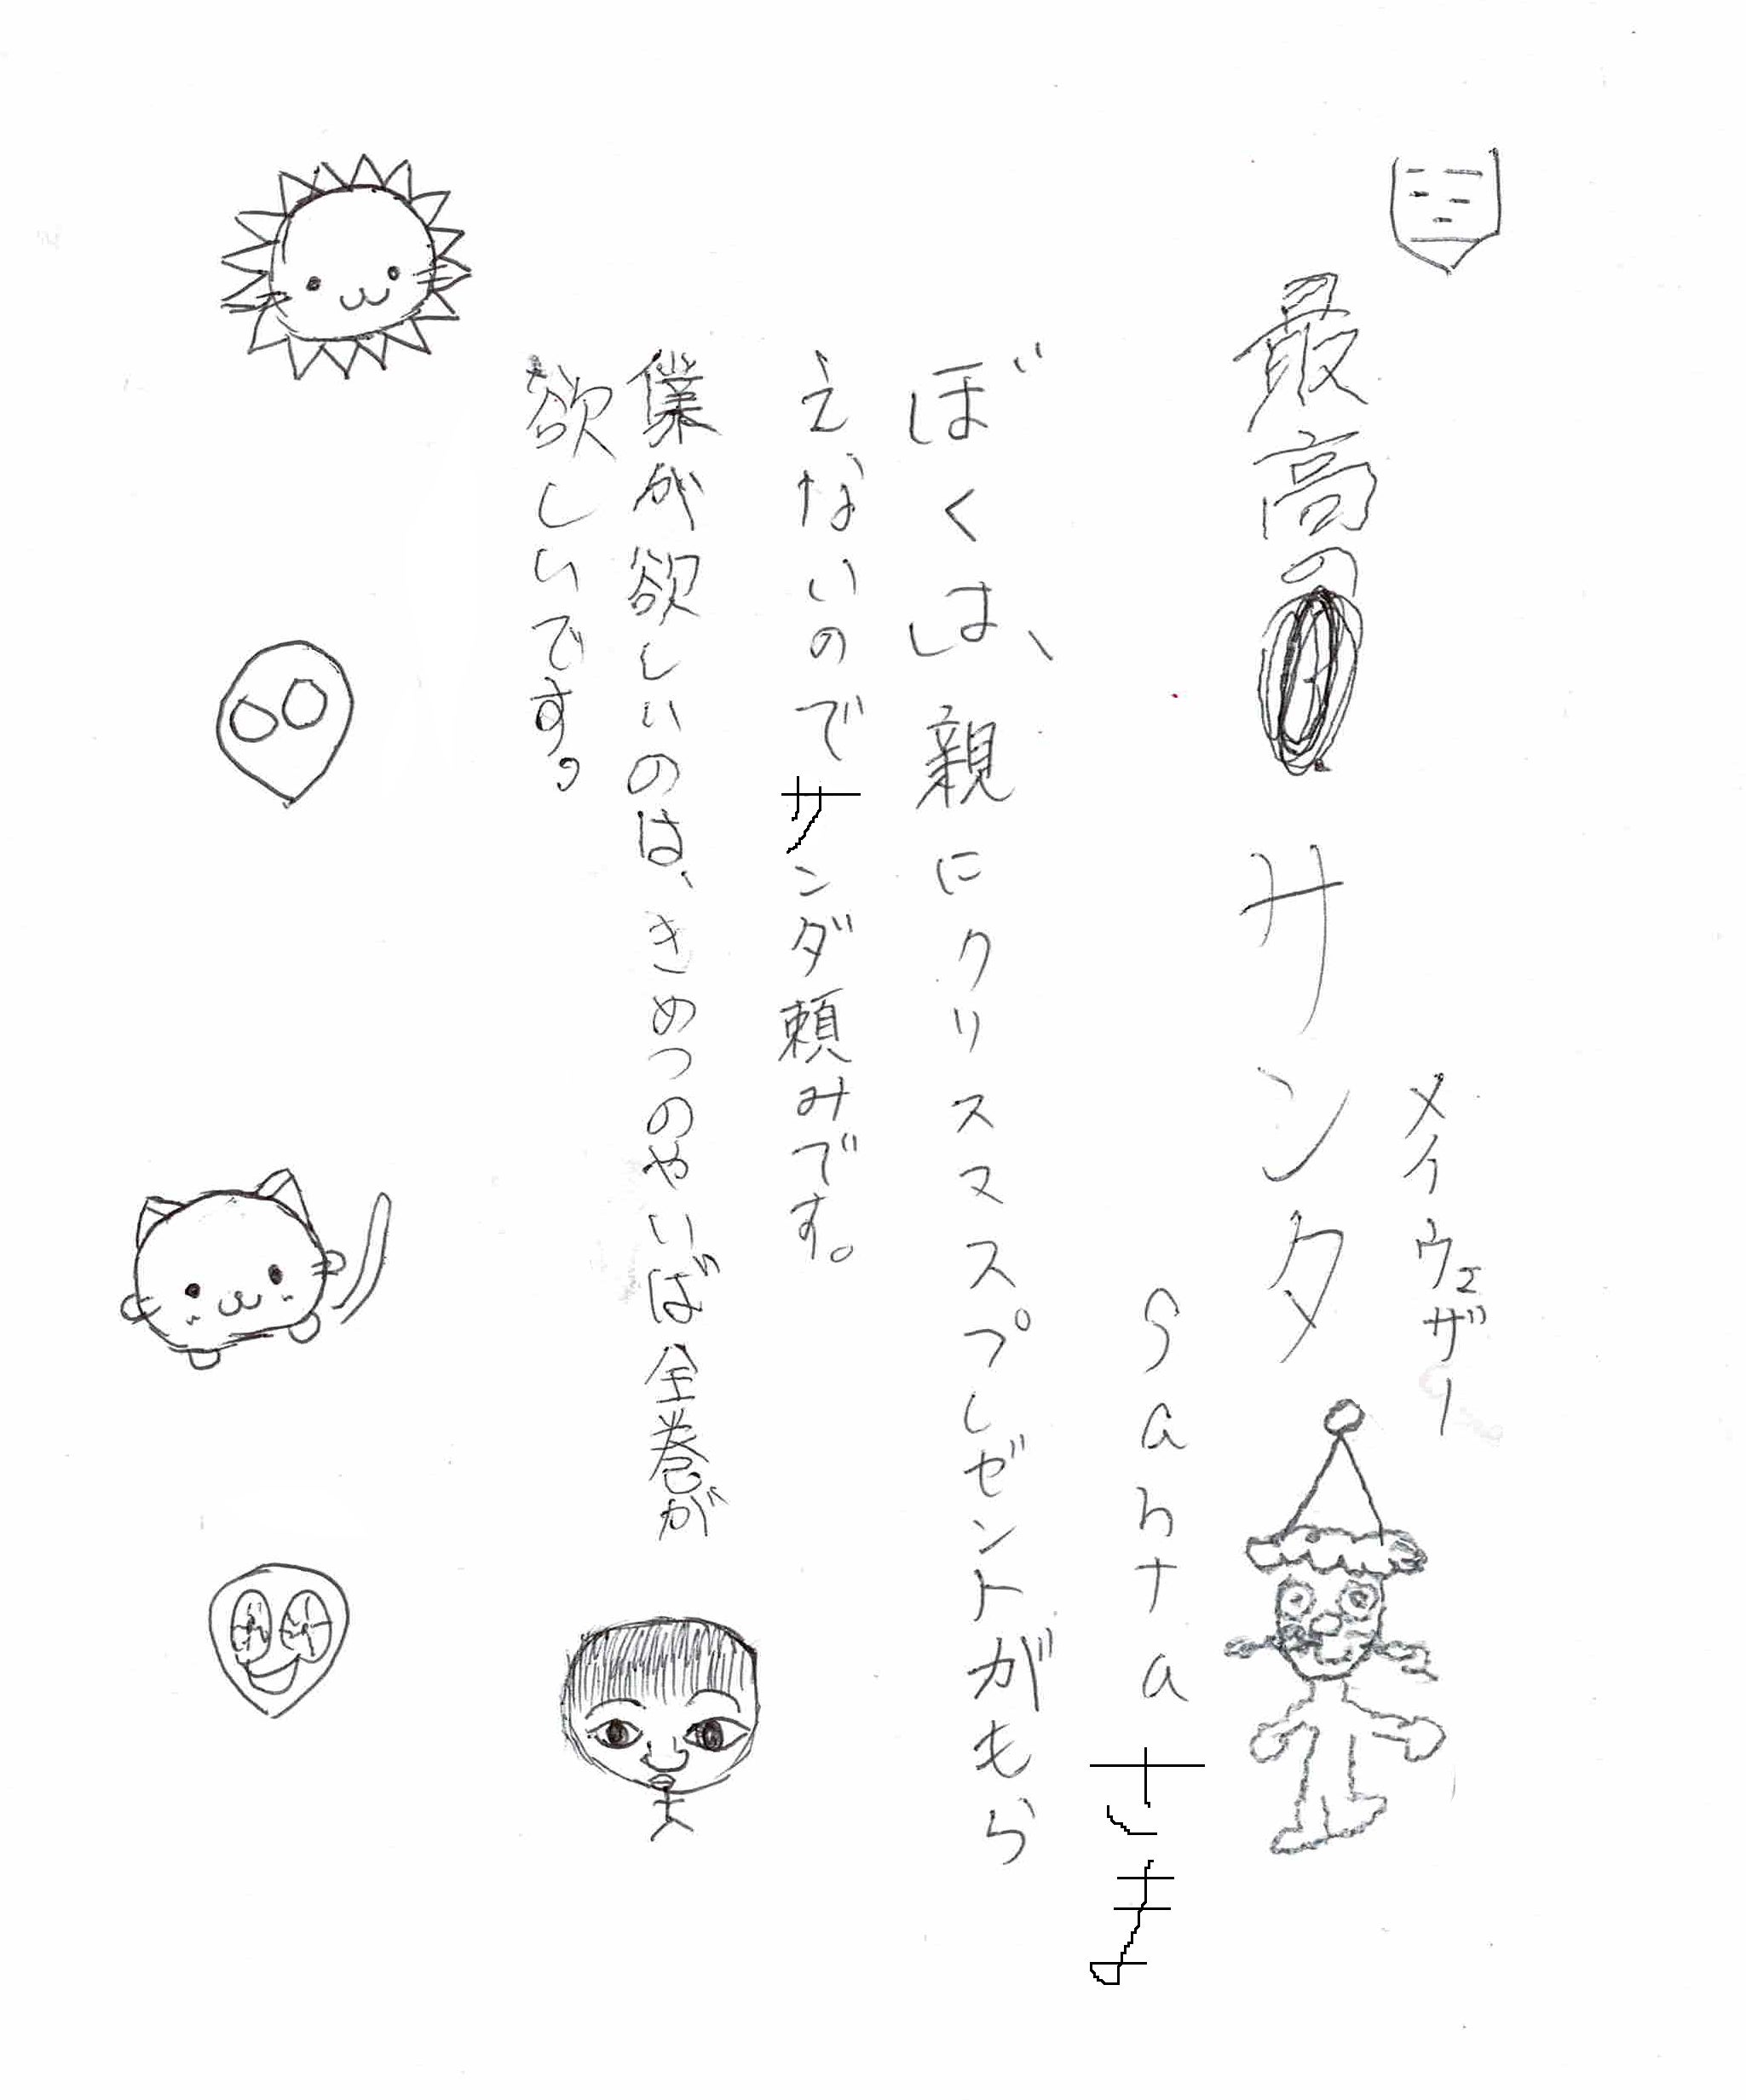 最高の
サンタ
メイウェザー
santa
さま
ぼくは、親にクリスマスプレゼントがもら
えないのでサンダ頼みです。
僕が欲しいのは、きめつのやいば全巻が
欲しいです。